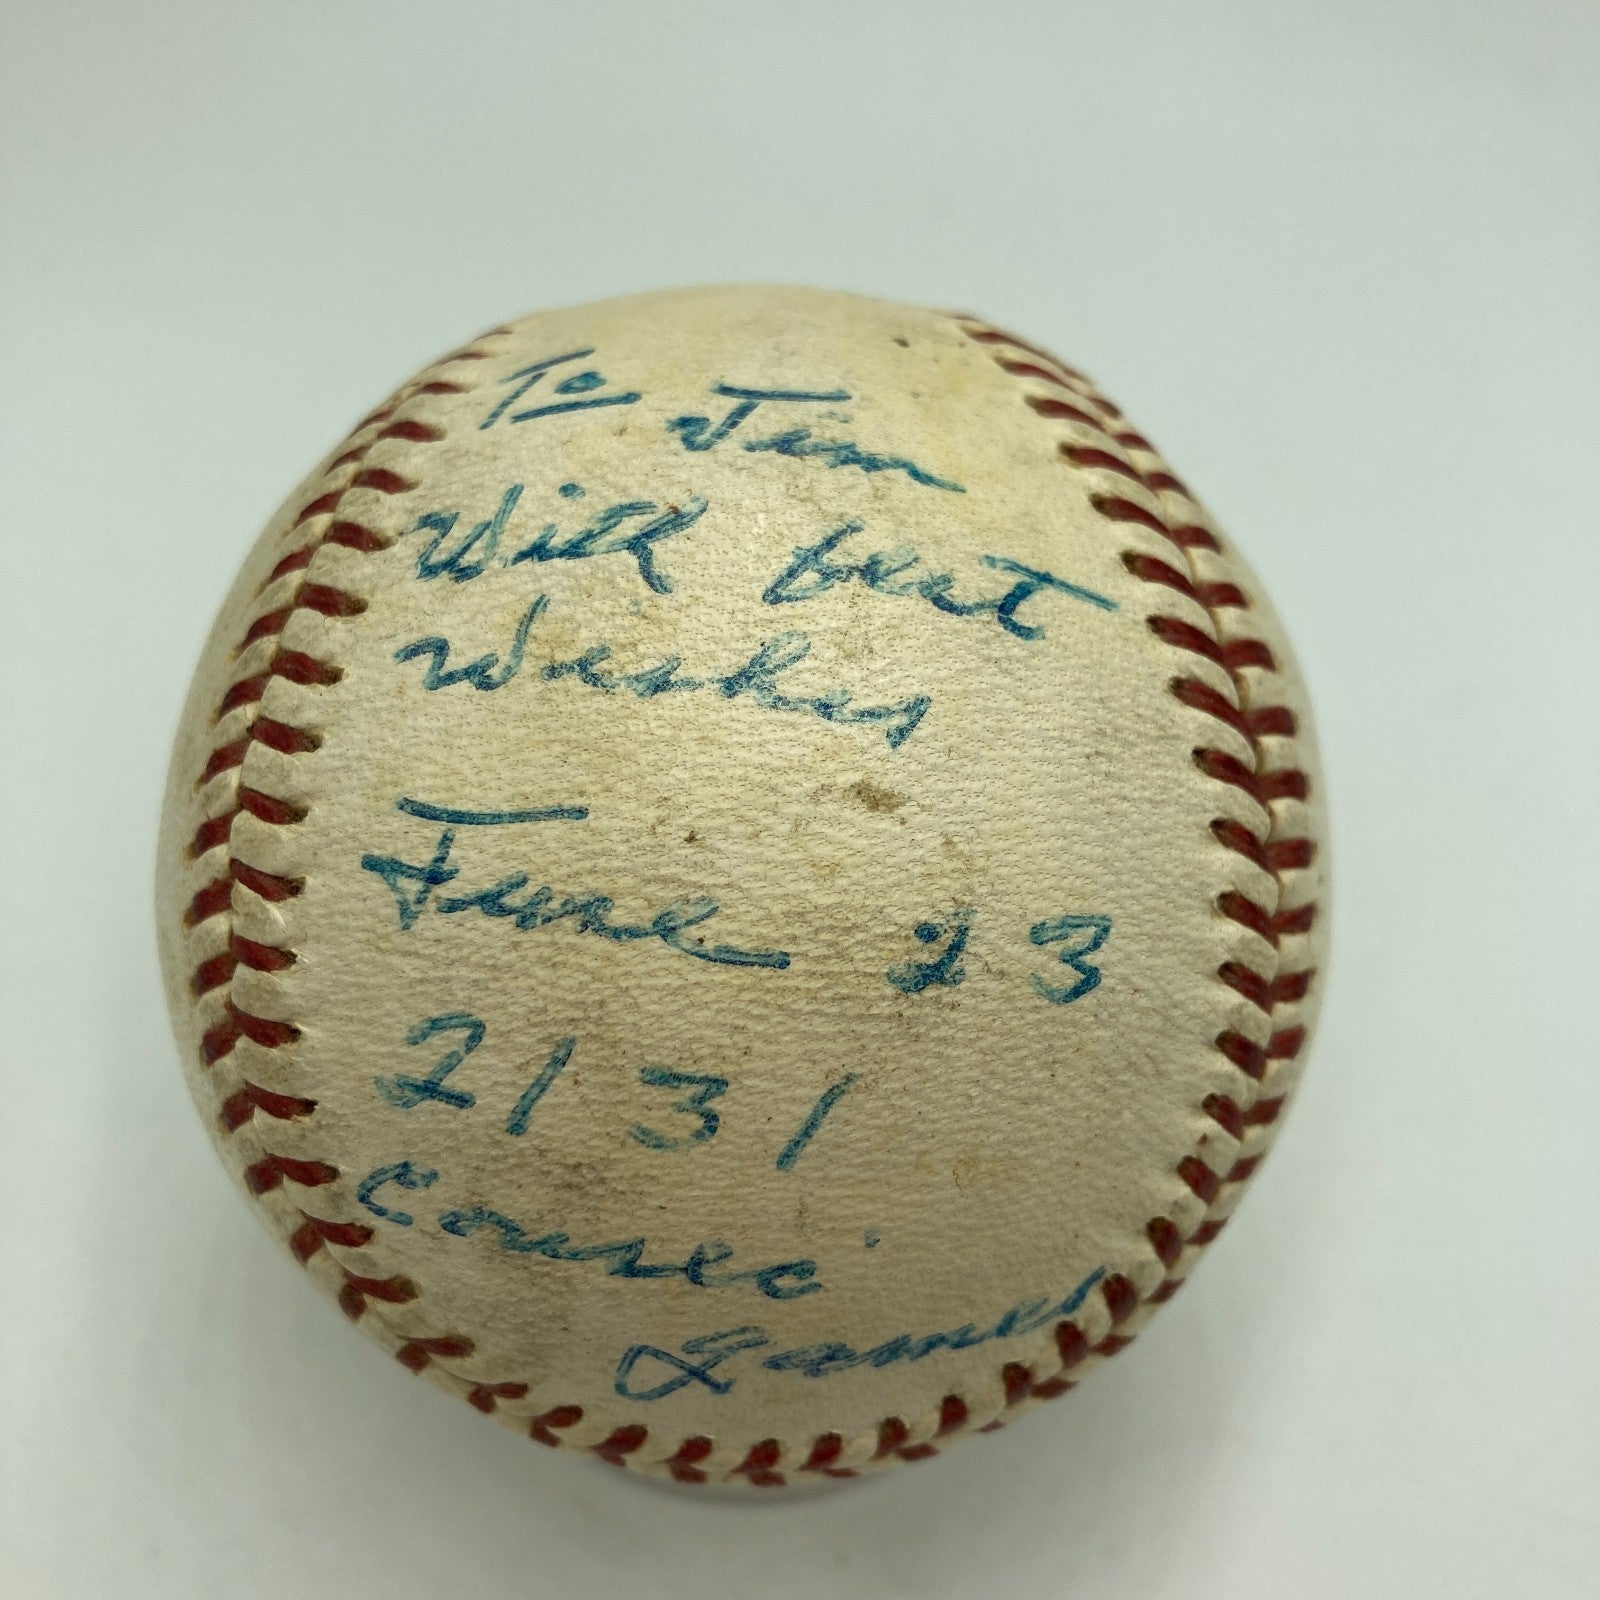 To Jim
With best
Wishes
June 23
2131
Consec.
Games